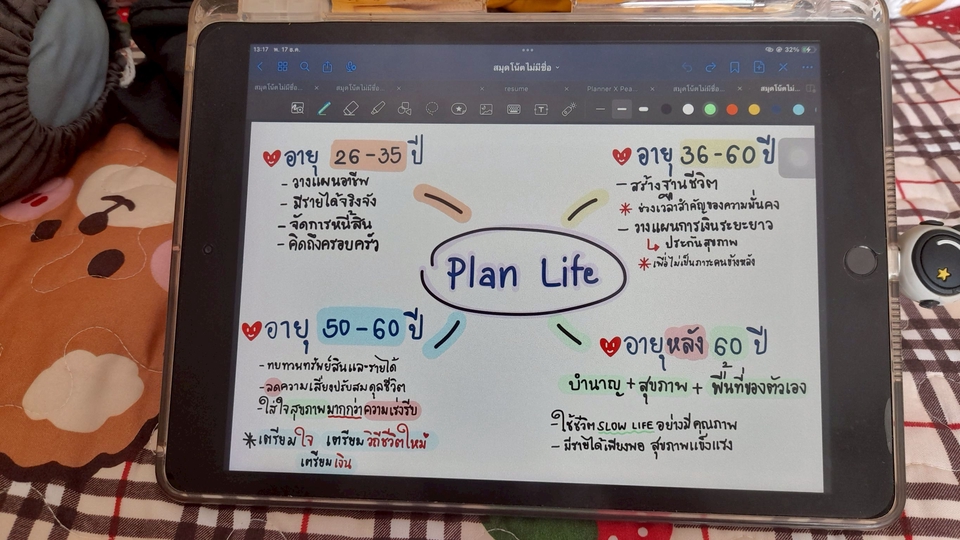 13:17 พ. 17 ธ.ค.
32%
สมุดโน้ตไม่มีชื่อ
สมุดโน้ตไม่มีชื่อ...
สมุดโน้ตไม่มีชื่อ...
resume
Planner X Pea...
สมุดโน้ตไม่มีชื่อ...
สมุดโน้ตไม่...
อายุ 26-35 ปี
- วางแผนอาชีพ
- มีรายได้จริงจัง
- จัดการหนี้สิน
- คิดถึงครอบครัว
อายุ 36-60 ปี
- สร้างฐานชีวิต
* ช่วงเวลาสำคัญของความมั่นคง
- วางแผนการเงินระยะยาว
↳ ประกันสุขภาพ
* เพื่อไม่เป็นภาระคนข้างหลัง
Plan Life
อายุ 50-60 ปี
- ทบทวนทรัพย์สินและรายได้
- ลดความเสี่ยงปรับสมดุลชีวิต
- ใส่ใจสุขภาพมากกว่าความเร่งรีบ
* เตรียมใจ เตรียมวิถีชีวิตใหม่
เตรียมเงิน
อายุหลัง 60 ปี
บำนาญ + สุขภาพ + พื้นที่ของตัวเอง
- ใช้ชีวิต SLOW LIFE อย่างมีคุณภาพ
- มีรายได้เพียงพอ สุขภาพแข็งแรง